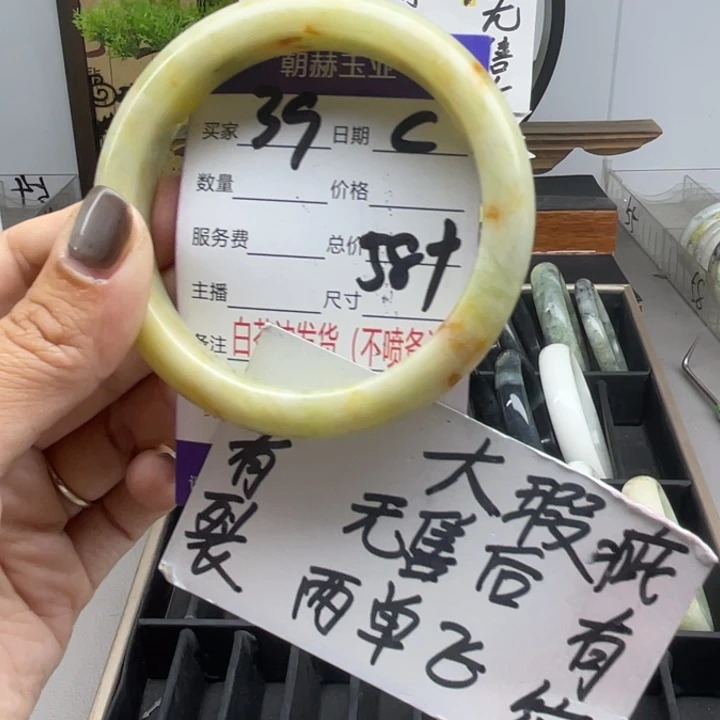 无售
朝赫玉业
买家 39 日期 C
数量 价格
服务费 总价 58+
主播 尺寸
备注 白菜油发货（不喷条）
有裂
大瑕疵
无售后
两单飞
有纹